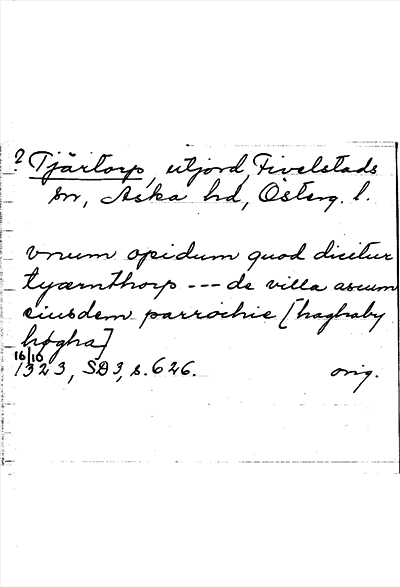 ? Tjärtorp, utjord, Fivelstads
sn, Aska hd, Österg. l.
vnum opidum quod dicitur
tyærnthorp --- de villa ascum
eiusdem parrochie [haghaby
høgha]
16/10
1323, SD3, s. 626. orig.